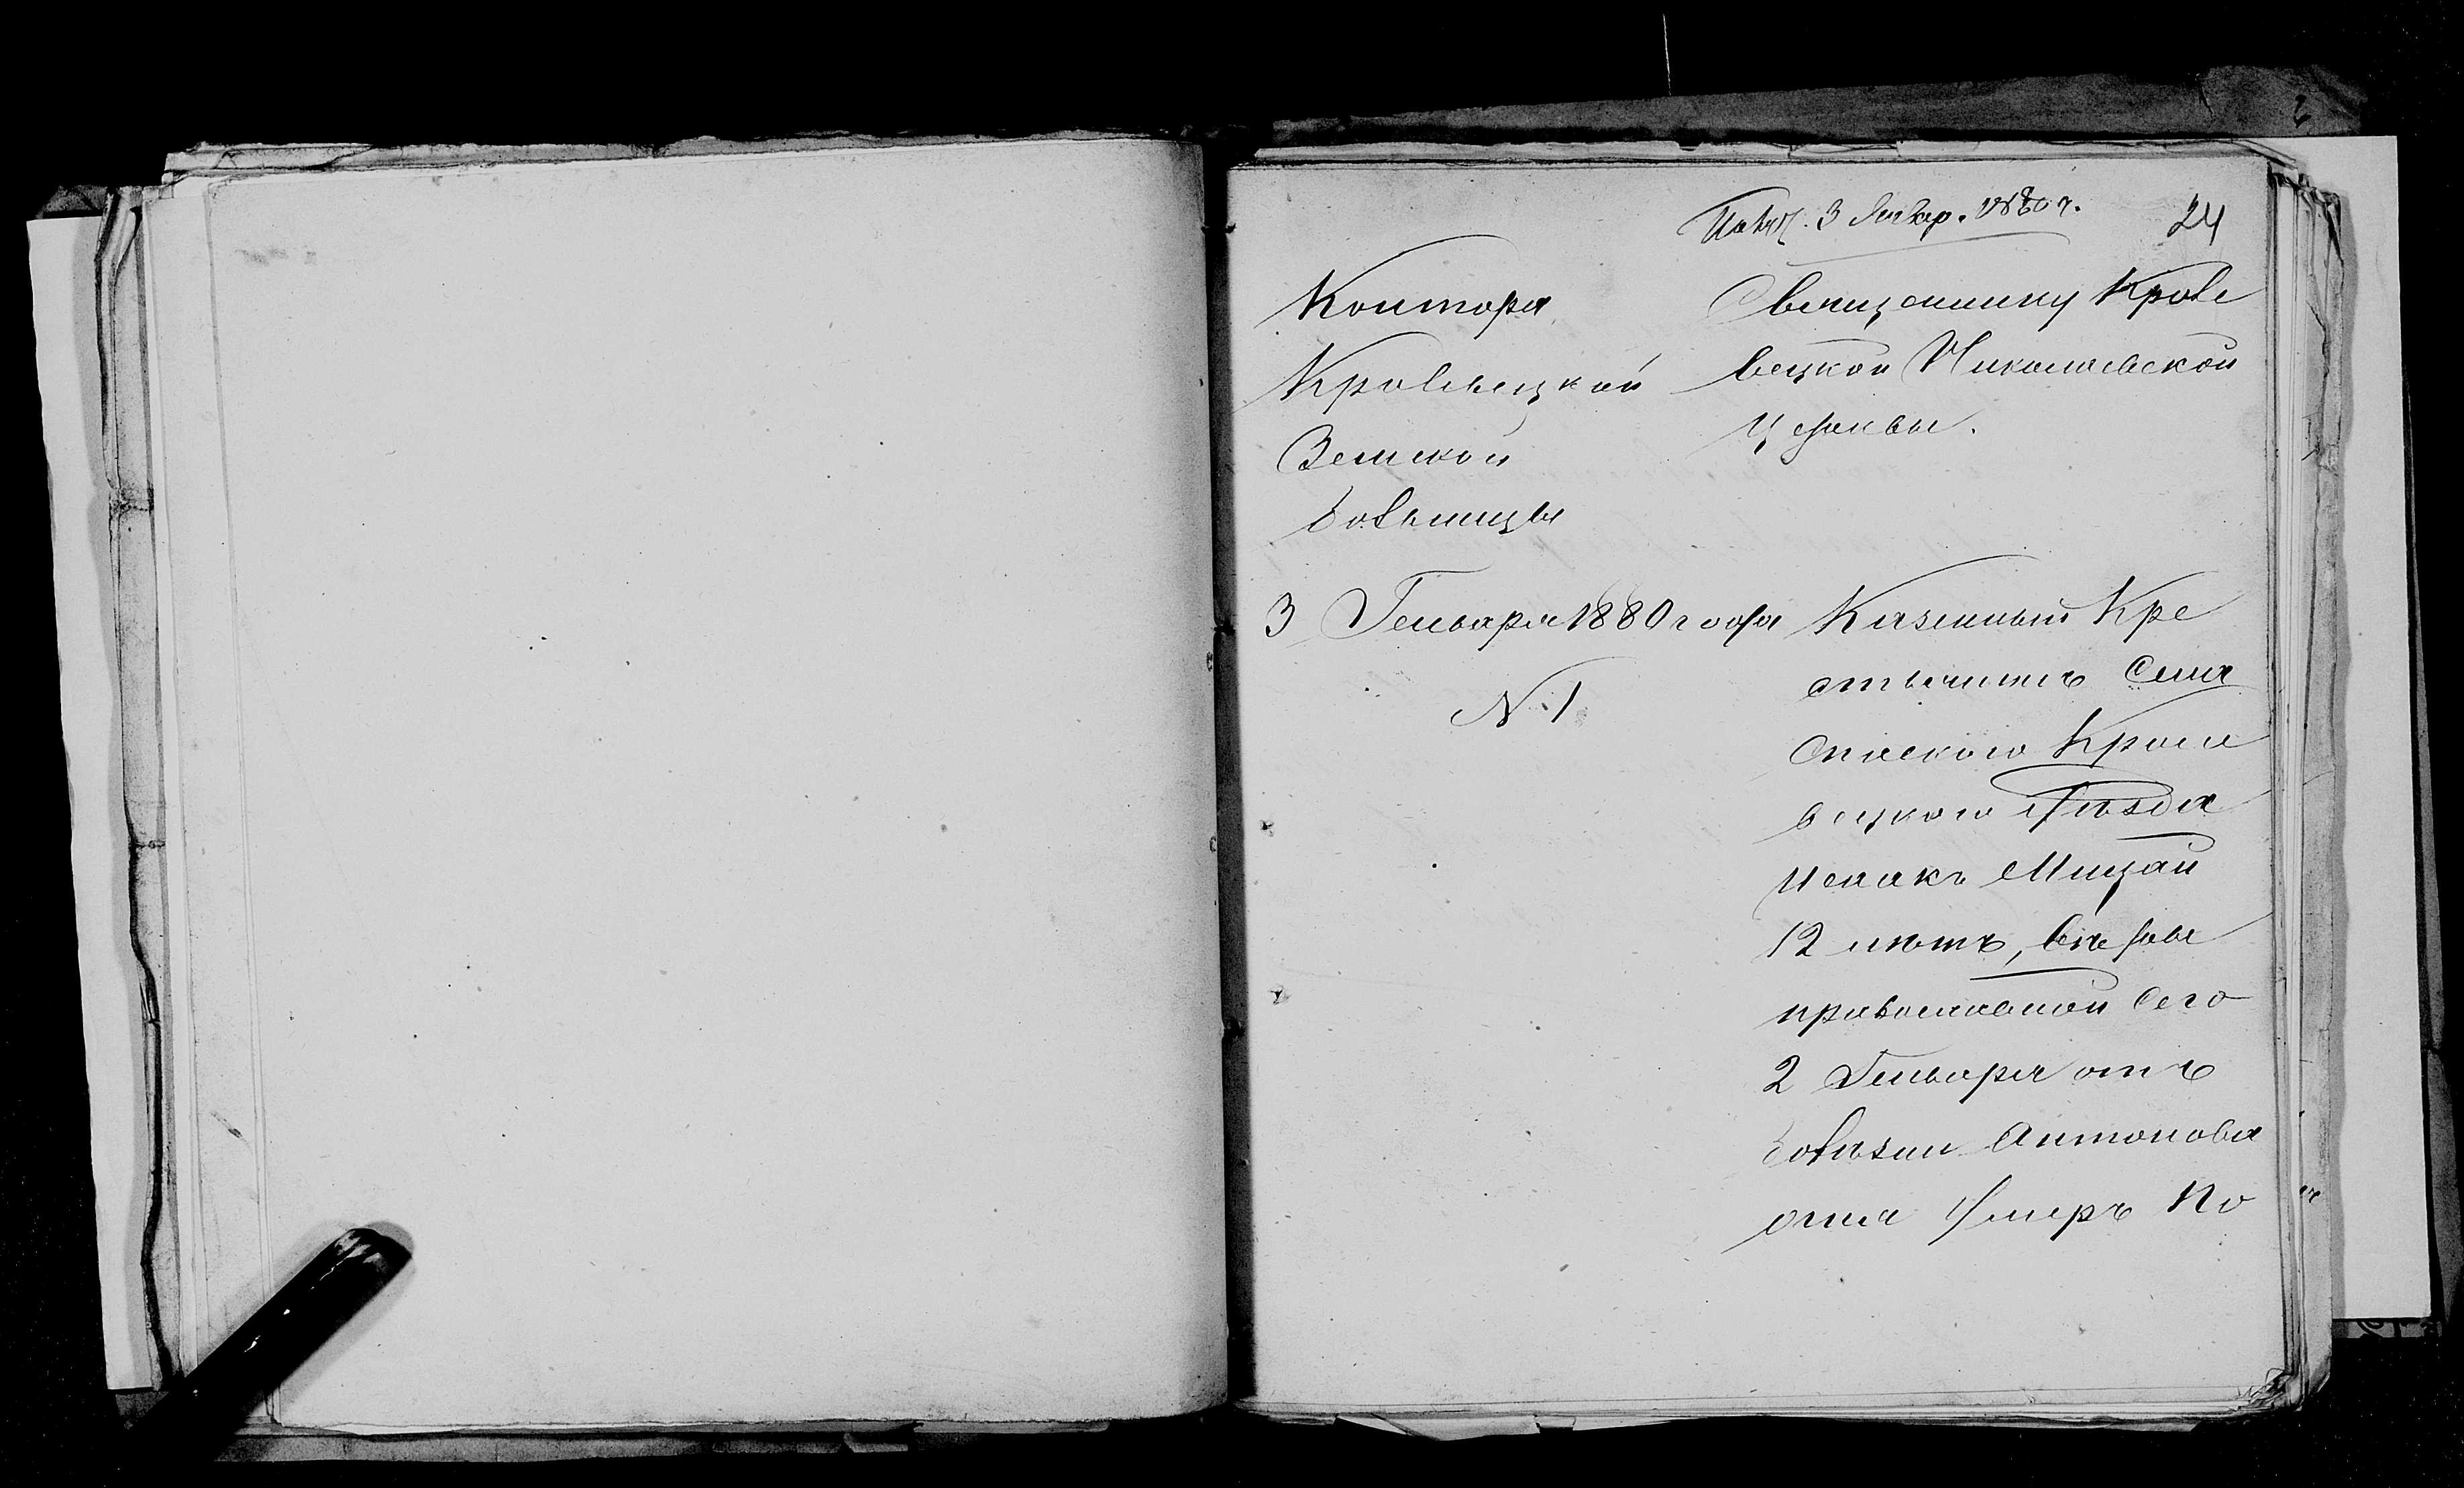 Получ. 3 Январ. 1880 г.
24
Контора
Кролевецкой
Земской
больницы
3 Генваря 1880 года
N. 1
Священнику Кроле
вецкой Николаевской
церквы.
Казенный Кре
стьянинъ Села
Спаского Кроле
вецкого Уѣзда
Исаакъ Мицай
12 лѣтъ, вѣры
православной сего
2 Генваря отъ
болѣзни Антонова
огня Умеръ По